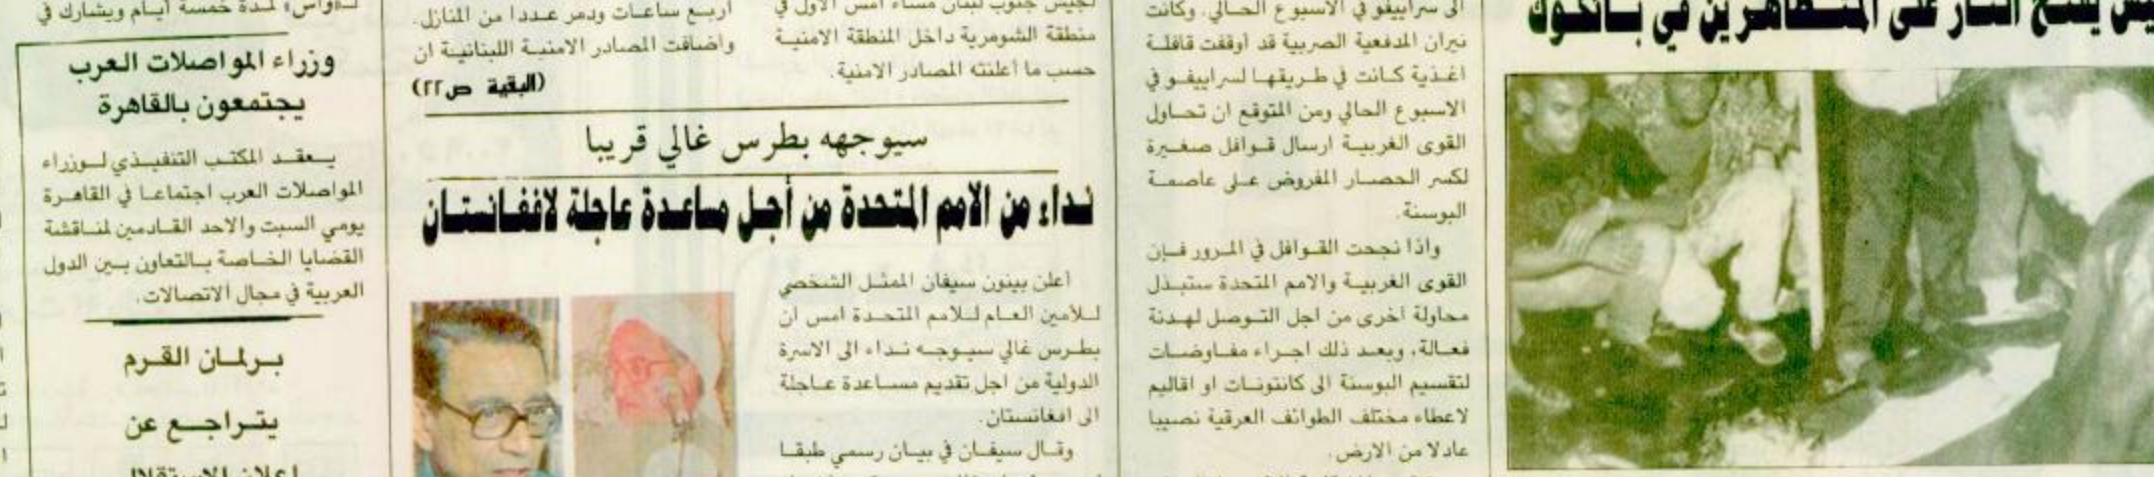 يفتح النار على المتظاهرين في بانكوك
الى سراييفو في الاسبوع الحالي. وكانت
نيران المدفعية الصربية قد أوقفت قافلة
اغذية كانت في طريقها لسراييفو في
الاسبوع الحالي ومن المتوقع ان تحاول
القوى الغربية ارسال قوافل صغيرة
لكسر الحصار المفروض على عاصمة
البوسنة.
واذا نجحت القوافل في المرور فإن
القوى الغربية والامم المتحدة ستبذل
محاولة أخرى من اجل التوصل لهدنة
فعالة، وبعد ذلك اجراء مفاوضات
لتقسيم البوسنة الى كانتونات او اقاليم
لاعطاء مختلف الطوائف العرقية نصيبا
عادلا من الارض.
لجيش جنوب لبنان مساء امس الاول في
منطقة الشومرية داخل المنطقة الامنية
حسب ما أعلنته المصادر الامنية.
أربع ساعات ودمر عددا من المنازل.
واضافت المصادر الامنية اللبنانية ان
(البقية ص٢٢)
سيوجهه بطرس غالي قريبا
نداء من الامم المتحدة من أجل مساعدة عاجلة لافغانستان
أعلن بينون سيفان الممثل الشخصي
للأمين العام للأمم المتحدة امس ان
بطرس غالي سيوجه نداء الى الاسرة
الدولية من اجل تقديم مساعدة عاجلة
الى افغانستان.
وقال سيفان في بيان رسمي طبقا
لمدة خمسة ايام ويشارك في
وزراء المواصلات العرب
يجتمعون بالقاهرة
يعقد المكتب التنفيذي لوزراء
المواصلات العرب اجتماعا في القاهرة
يومي السبت والاحد القادمين لمناقشة
القضايا الخاصة بالتعاون بين الدول
العربية في مجال الاتصالات.
برلمان القرم
يتراجع عن
اعلان الاستقلال